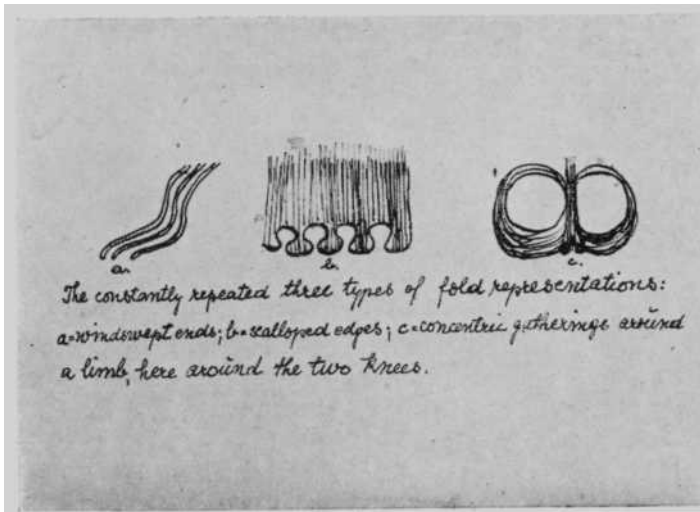 a. b. c.
The constantly repeated three types of fold representations:
a=windswept ends; b=scalloped edges; c=concentric gatherings around
a limb, here around the two knees.